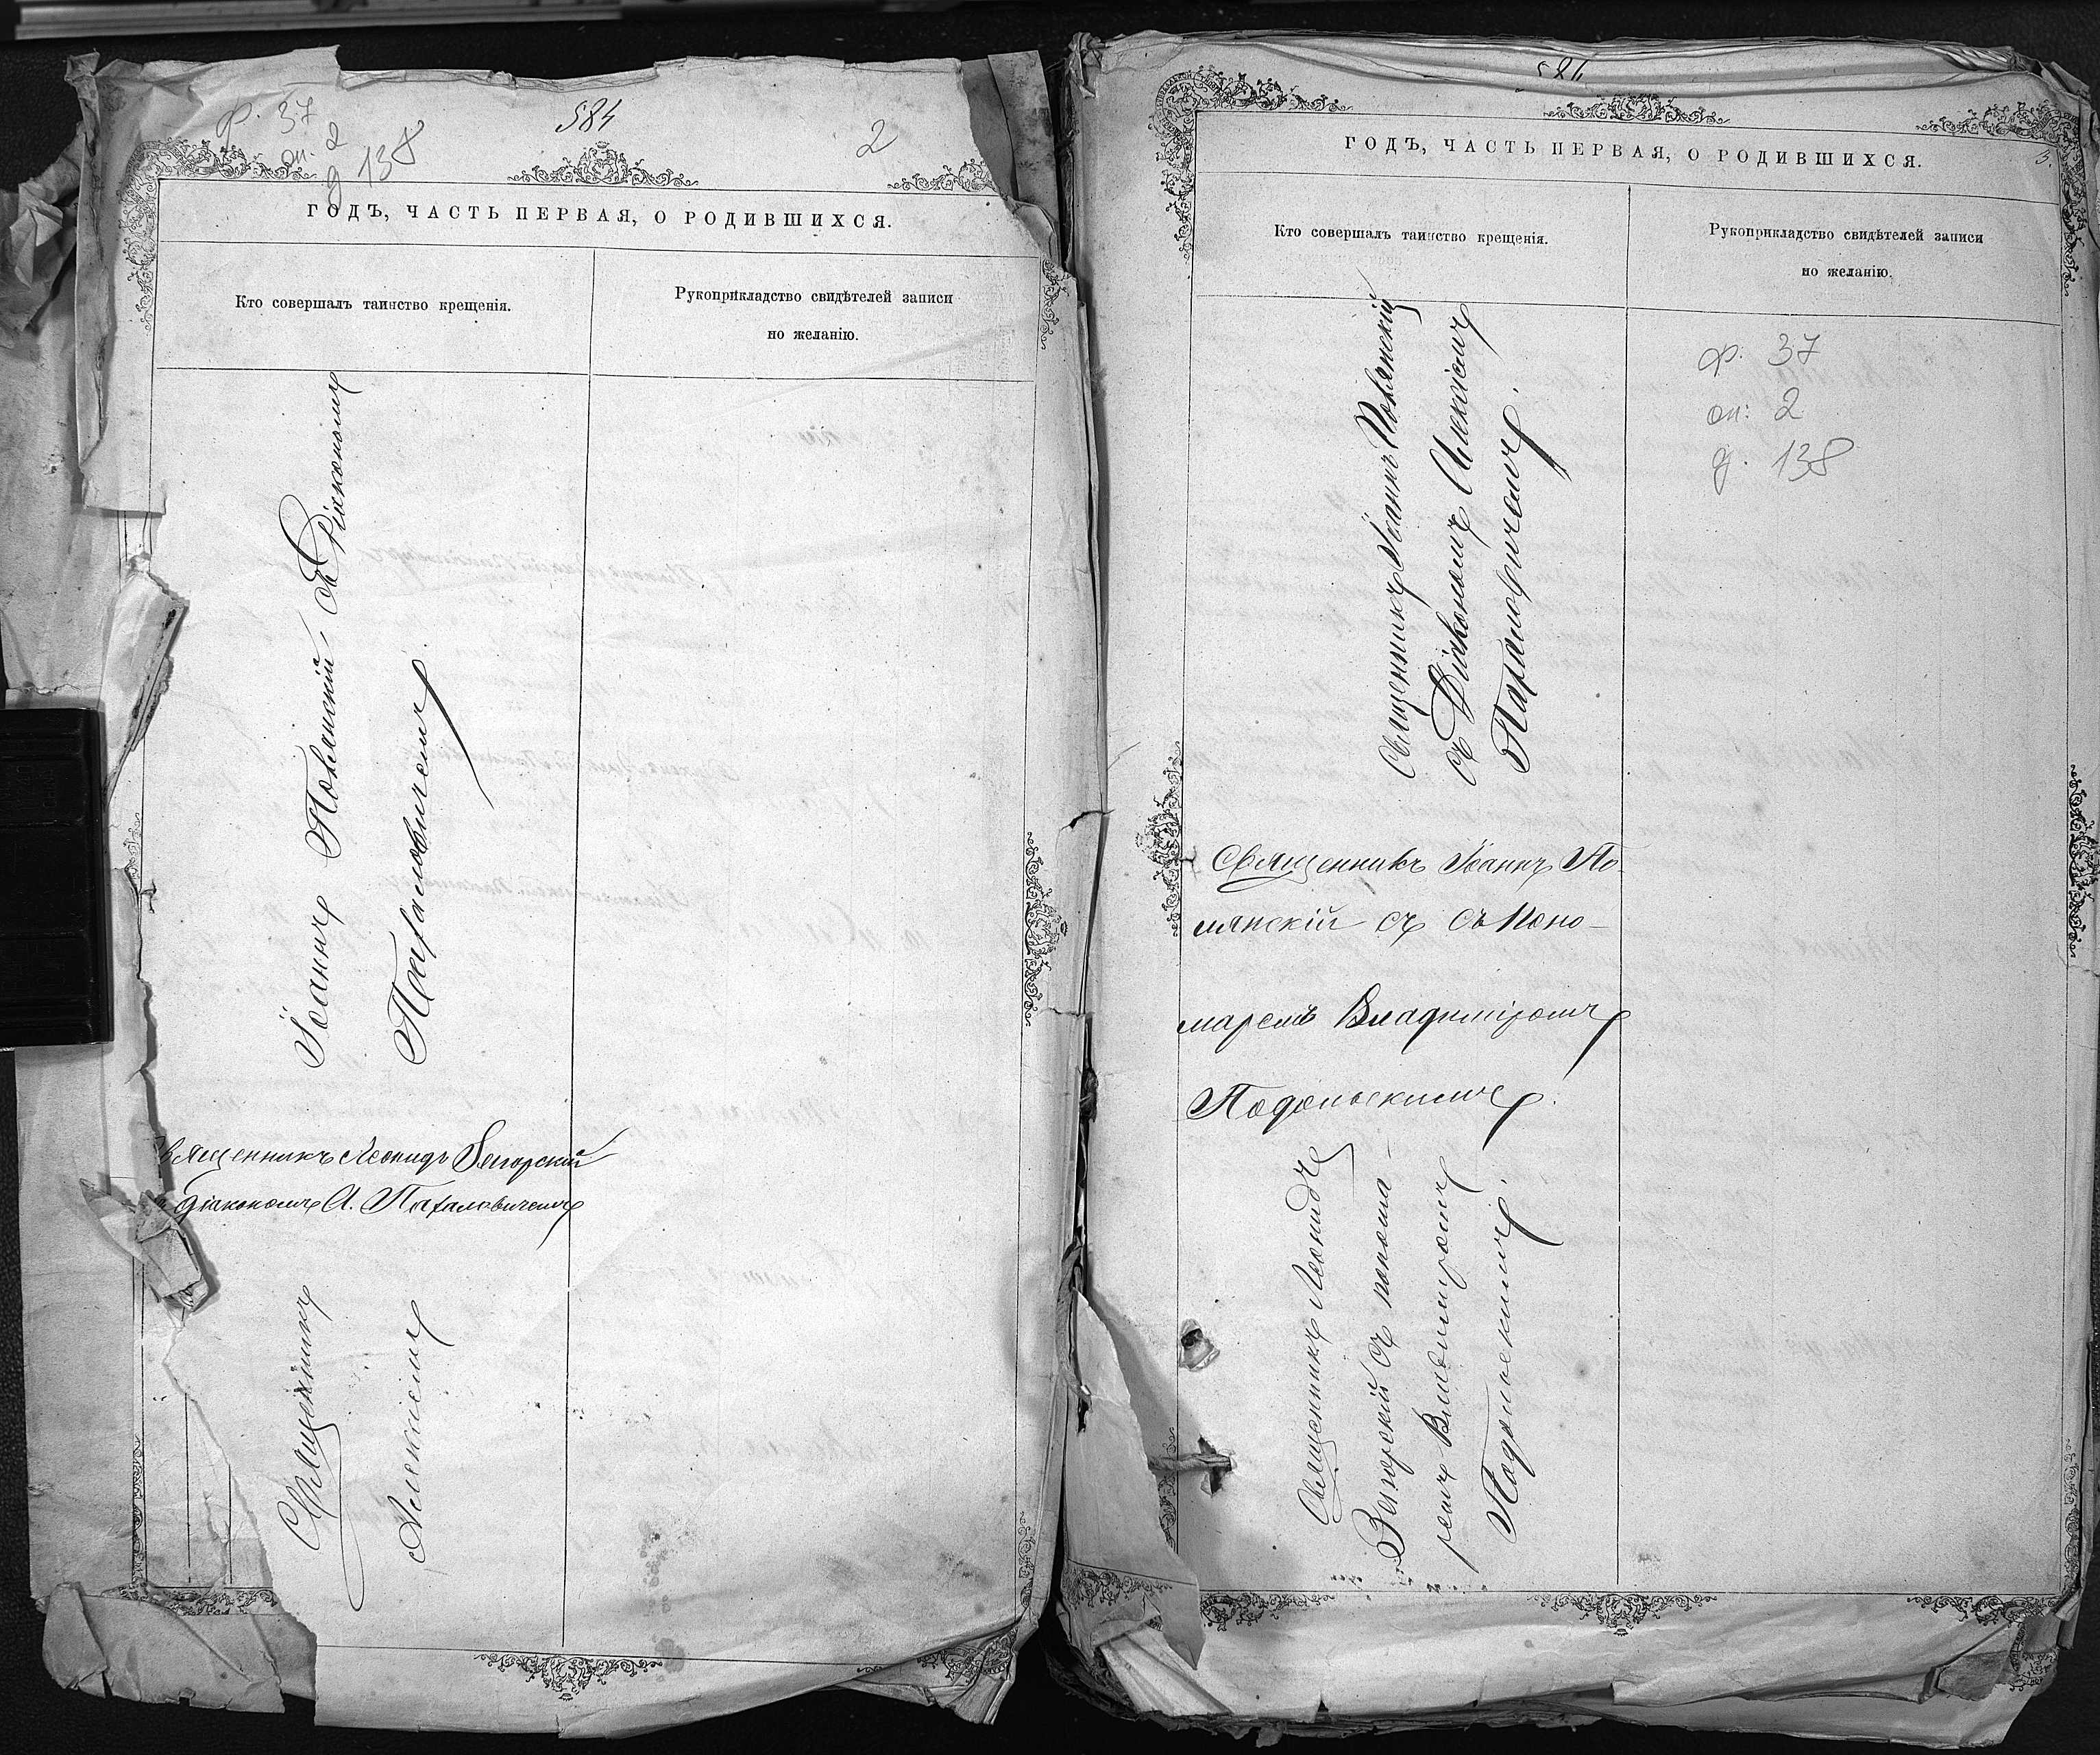 ф. 37
оп. 2
д 138
584
2
ГОДЪ, ЧАСТЬ ПЕРВАЯ, О РОДИВШИХСЯ.
Кто совершалъ таинство крещенія.
Рукоприкладство свидѣтелей записи
по желанію.
Іоаннъ Полянскій съ Діакономъ
Паталовичемъ
вященникъ Леонидъ Загорскій
діакономъ А. Паталовичемъ
Священникъ
Алексіемъ
584
3.
ГОДЪ, ЧАСТЬ ПЕРВАЯ, О РОДИВШИХСЯ.
Кто совершалъ таинство крещенія.
Рукоприкладство свидѣтелей записи
по желанію.
ф. 37
оп: 2
д. 138
Священникъ Іоаннъ Полянскій
съ Діакономъ Алексіемъ
Паталовичемъ.
Священникъ Іоаннъ По-
лянскій съ съ поно-
маремъ Владиміромъ
Подольскимъ.
Священникъ Леонидъ
Загорскій съ понома-
ремъ Владиміромъ
Подольскимъ.